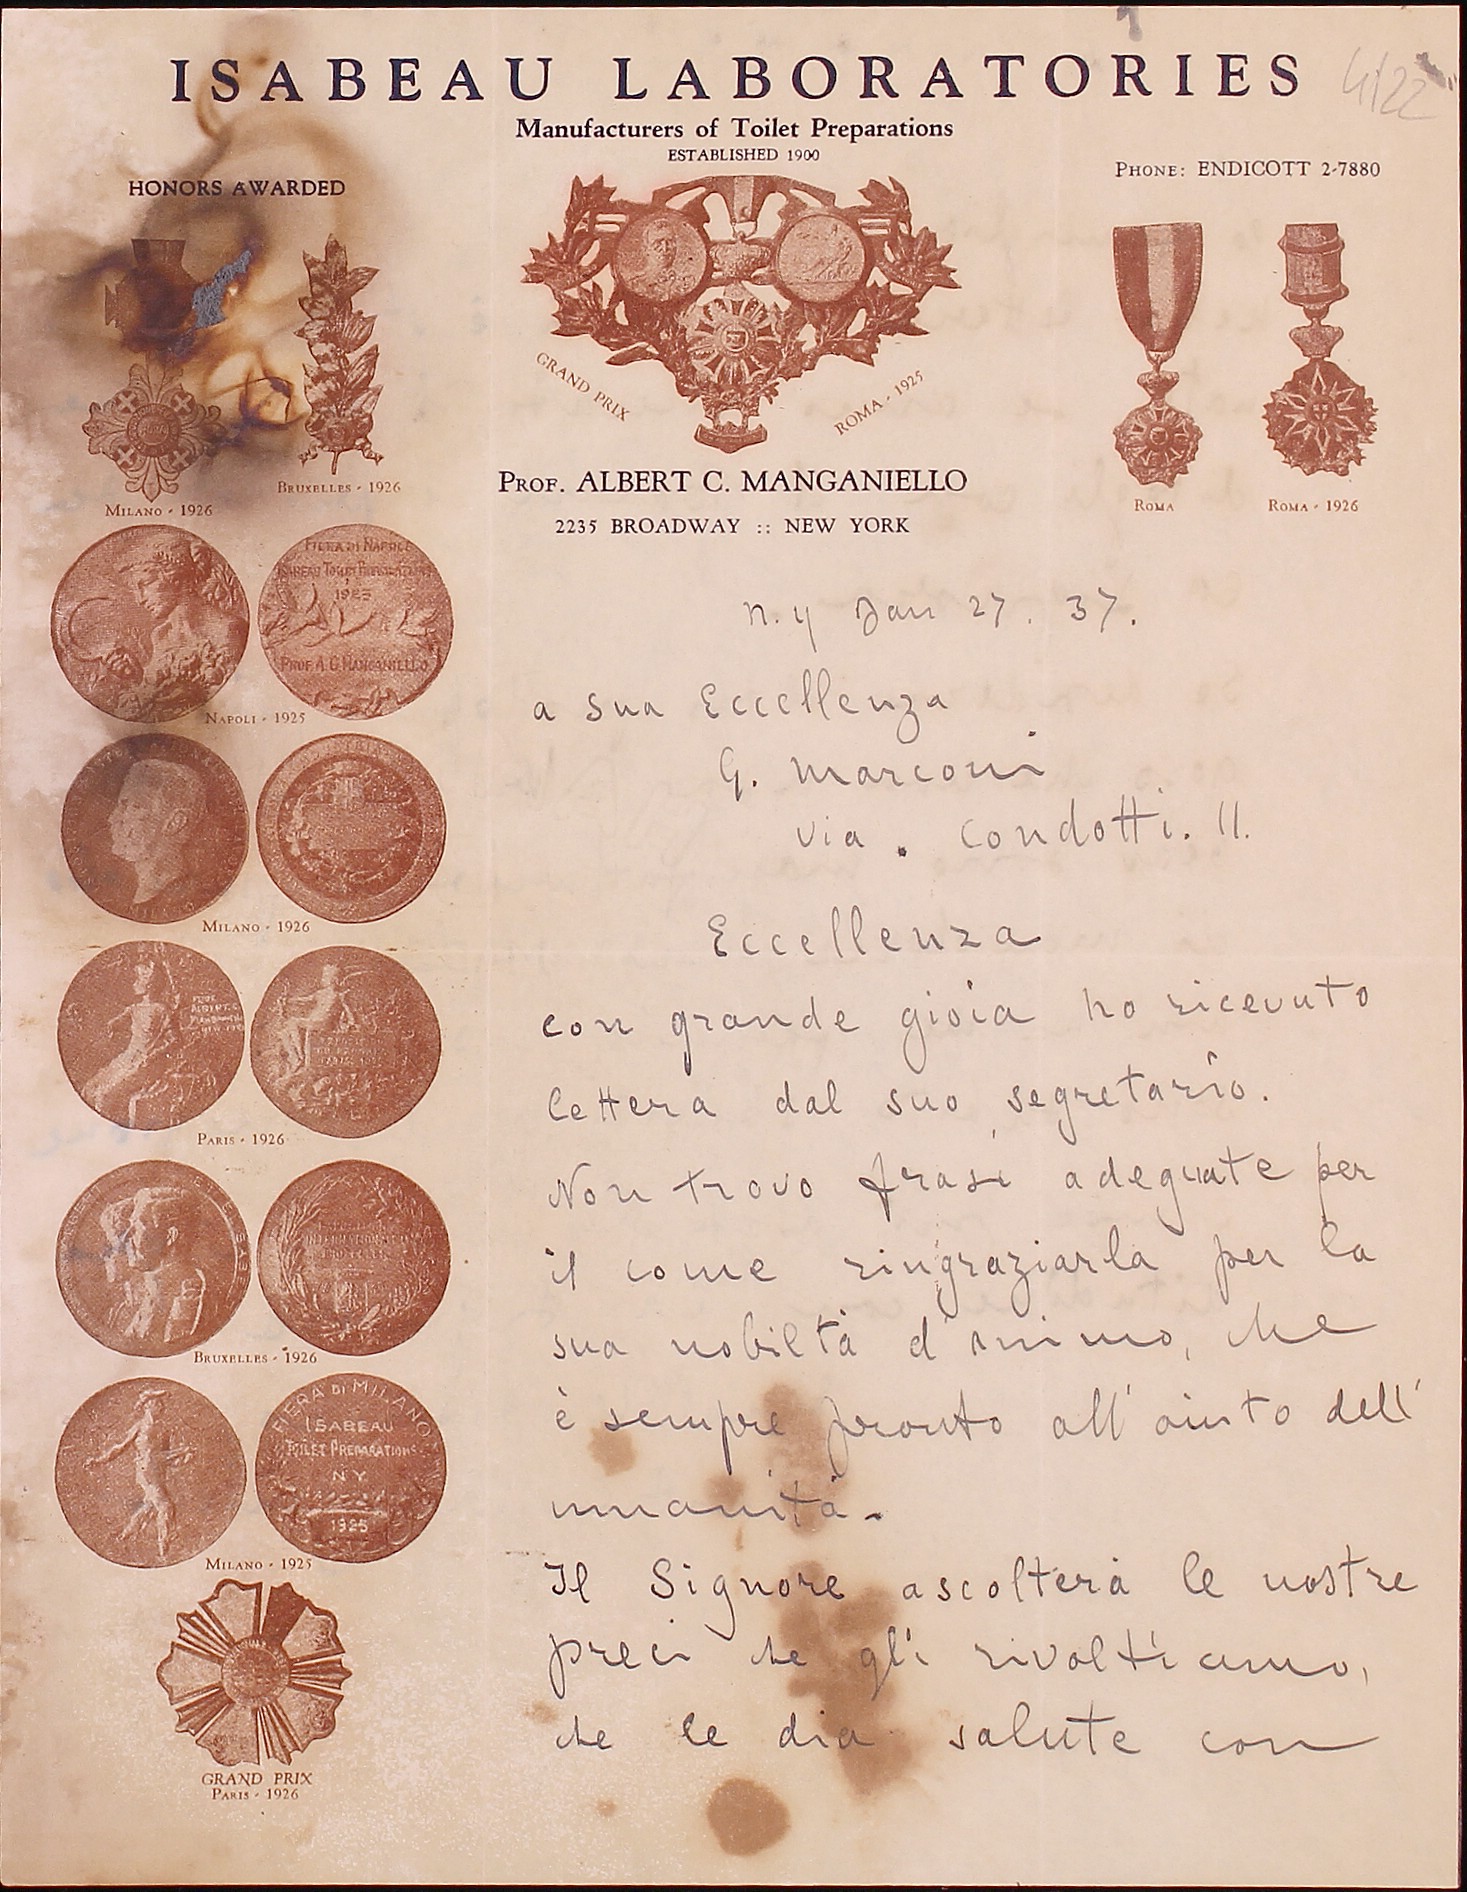 ISABEAU LABORATORIES
4/22
Manufacturers of Toilet Preparations
ESTABLISHED 1900
PHONE: ENDICOTT 2-7880
HONORS AWARDED
GRAND PRIX
ROMA - 1925
MILANO - 1926
BRUXELLES - 1926
ROMA
ROMA - 1926
PROF. ALBERT C. MANGANIELLO
2235 BROADWAY :: NEW YORK
FIERA DI NAPOLI
ISABEAU TOILET PREPARATIONS
PROF. A. C. MANGANIELLO
NAPOLI - 1925
MILANO
MILANO - 1926
PARIS - 1926
BRUXELLES - 1926
FIERA DI MILANO
ISABEAU
TOILET PREPARATIONS
N Y
1925
MILANO - 1925
GRAND PRIX
PARIS - 1926
n. y Jan 27. 37.
a sua Eccellenza
G. Marconi
via. Condotti. 11.
Eccellenza
con grande gioia ho ricevuto
lettera dal suo segretario.
Non trovo frasi adeguate per
il come ringraziarla per la
sua nobiltà d'animo, che
è sempre pronto all'aiuto dell'
umanità.
Il Signore ascolterà le nostre
preci che gli rivoltiamo,
che le dia salute con